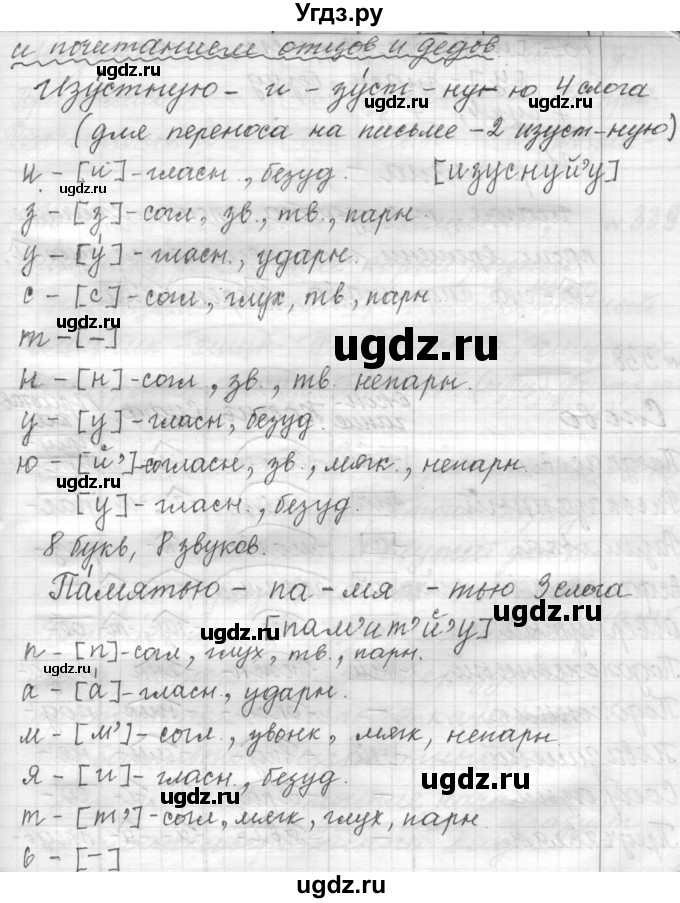 Угдз.ру
и почитанием отцов и дедов
Изу́стную – и – зу́ст – ну – ю 4 слога
(для переноса на письме – 2 изуст-ную)
и – [и] – гласн., безуд. [изуснуй’у]
з – [з] – согл, зв., тв., парн.
у – [у́] – гласн., ударн.
с – [с] – согл, глух, тв., парн
ugdz.ru
т – [–]
н – [н] – согл, зв., тв. непарн.
у – [у] – гласн, безуд.
ю – [й’] – согласн, зв., мягк., непарн.
[у] – гласн., безуд.
8 букв, 8 звуков.
Па́мятью – па – мя – тью 3 слога
[пам’ит’й’у]
п – [п] – согл, глух, тв., парн.
а – [а́] – гласн., ударн.
м – [м’] – согл., звонк, мягк, непарн.
я – [и] – гласн, безуд.
т – [т’] – согл, мягк, глух, парн.
ь – [–]
ugdz.ru